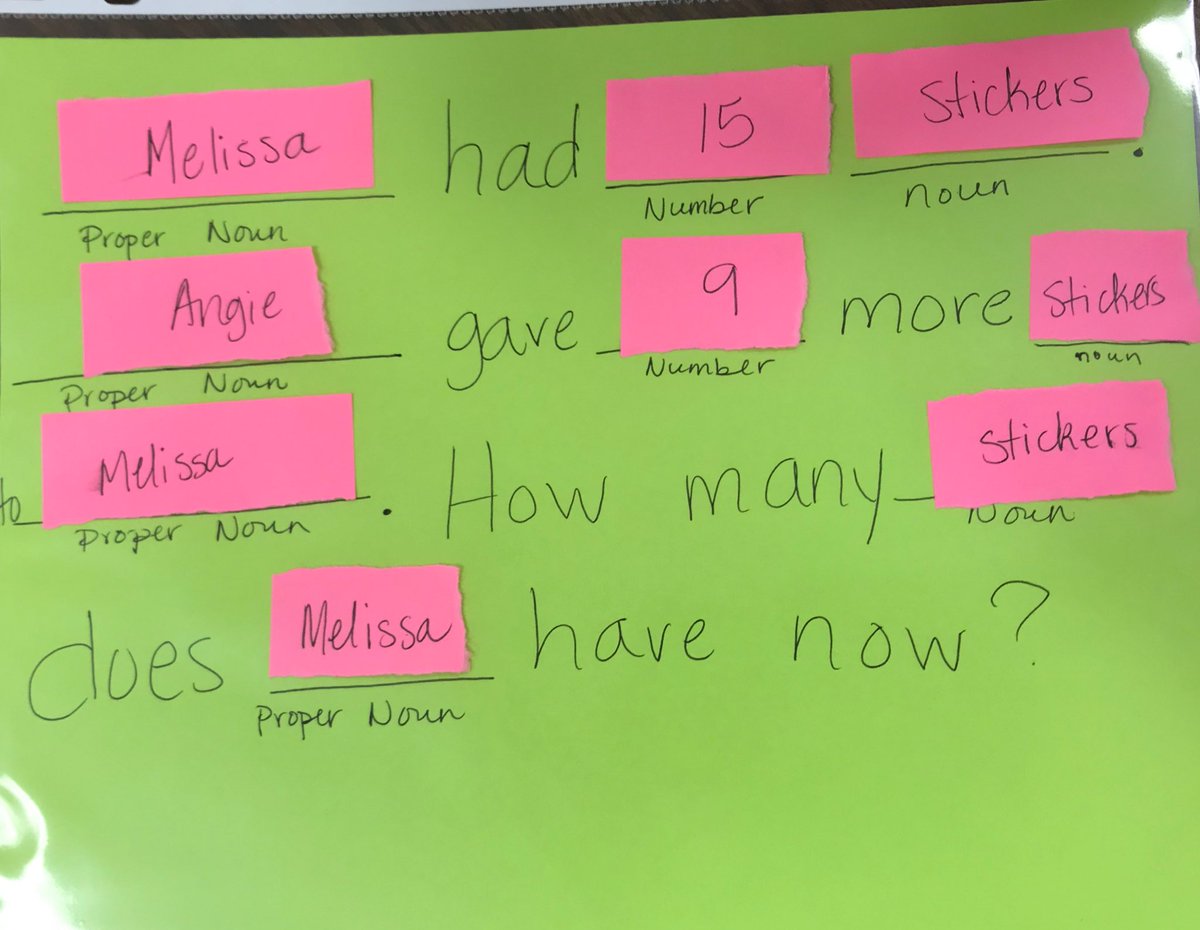 Melissa had 15 Stickers.
Proper Noun Number noun
Angie gave 9 more Stickers
Proper Noun Number noun
to Melissa. How many Stickers
Proper Noun Noun
does Melissa have now?
Proper Noun